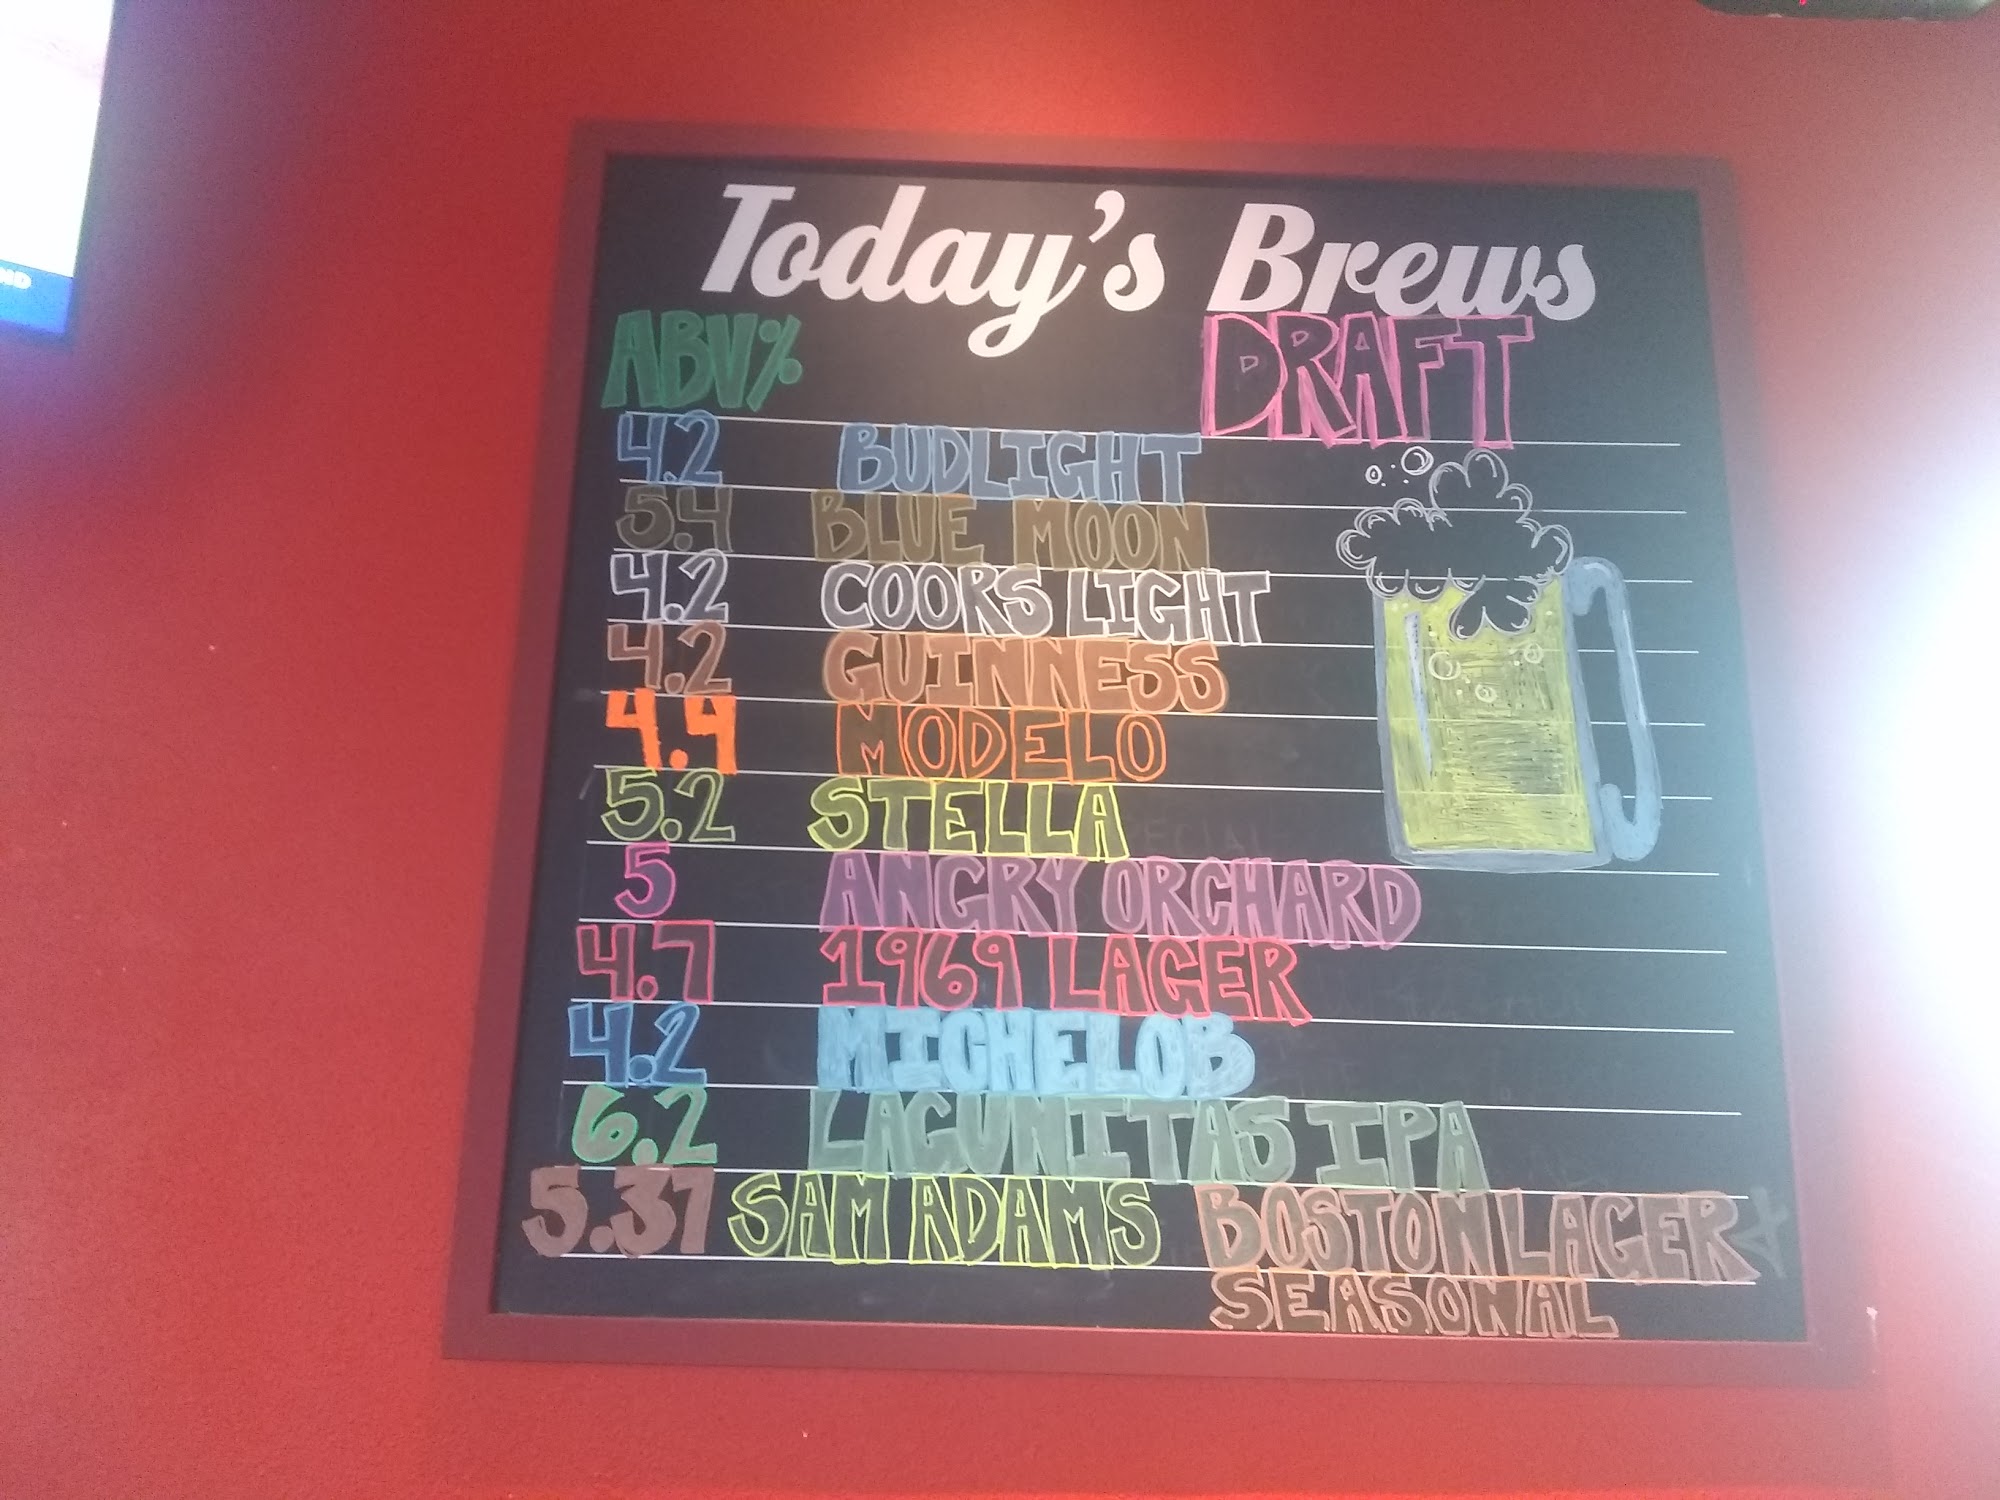 Today's Brews
ABV% DRAFT
4.2 BUDLIGHT
5.4 BLUE MOON
4.2 COORS LIGHT
4.2 GUINNESS
4.4 MODELO
5.2 STELLA
5 ANGRY ORCHARD
4.7 1969 LAGER
4.2 MICHELOB
6.2 LAGUNITAS IPA
5.37 SAM ADAMS BOSTON LAGER +
SEASONAL